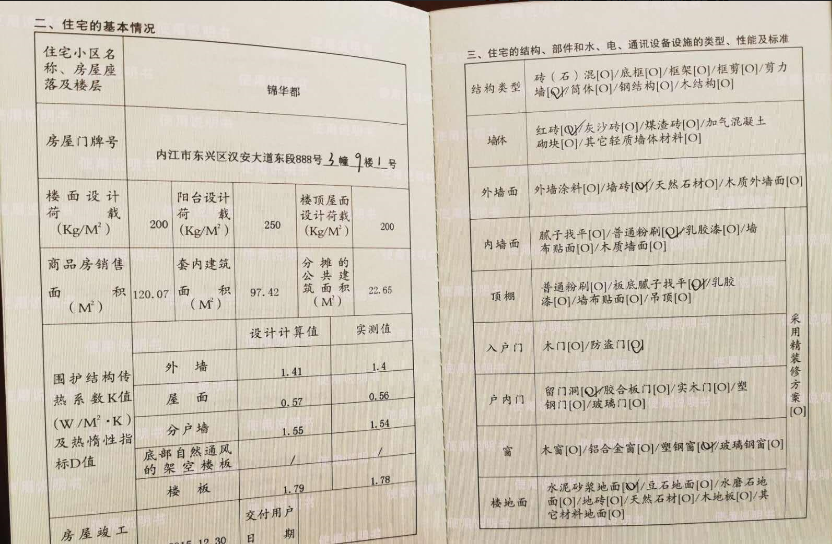 二、住宅的基本情况
住宅小区名
称、房屋座
落及楼层
锦华都
房屋门牌号
内江市东兴区汉安大道东段888号 3 幢 9 楼 1 号
楼面设计
荷载
(Kg/M²)
200
阳台设计
荷载
(Kg/M²)
250
楼顶屋面
设计荷载
(Kg/M²)
200
商品房销售
面积
(M²)
120.07
套内建筑
面积
(M²)
97.42
分摊的
公共建
筑面积
(M²)
22.65
围护结构传
热系数K值
(W/M²·K)
及热惰性指
标D值
设计计算值 实测值
外墙 1.41 1.4
屋面 0.57 0.56
分户墙 1.55 1.54
底部自然通风
的架空楼板 / /
楼板 1.79 1.78
房屋竣工
12.30
交付用户
日期
三、住宅的结构、部件和水、电、通讯设备设施的类型、性能及标准
结构类型
砖（石）混[O]/底框[O]/框架[O]/框剪[O]/剪力
墙[O]/筒体[O]/钢结构[O]/木结构[O]
墙体
红砖[O]/灰沙砖[O]/煤渣砖[O]/加气混凝土
砌块[O]/其它轻质墙体材料[O]
外墙面
外墙涂料[O]/墙砖[O]/天然石材O]/木质外墙面[O]
内墙面
腻子找平[O]/普通粉刷[O]/乳胶漆[O]/墙
布贴面[O]/木质墙面[O]
顶棚
普通粉刷[O]/板底腻子找平[O]/乳胶
漆[O]/墙布贴面[O]/吊顶[O]
入户门
木门[O]/防盗门[O]
户内门
留门洞[O]/胶合板门[O]/实木门[O]/塑
钢门[O]/玻璃门[O]
窗
木窗[O]/铝合金窗[O]/塑钢窗[O]/玻璃钢窗[O]
楼地面
水泥砂浆地面[O]/豆石地面[O]/水磨石地
面[O]/地砖[O]/天然石材[O]/木地板[O]/其
它材料地面[O]
采用精装修方案[O]